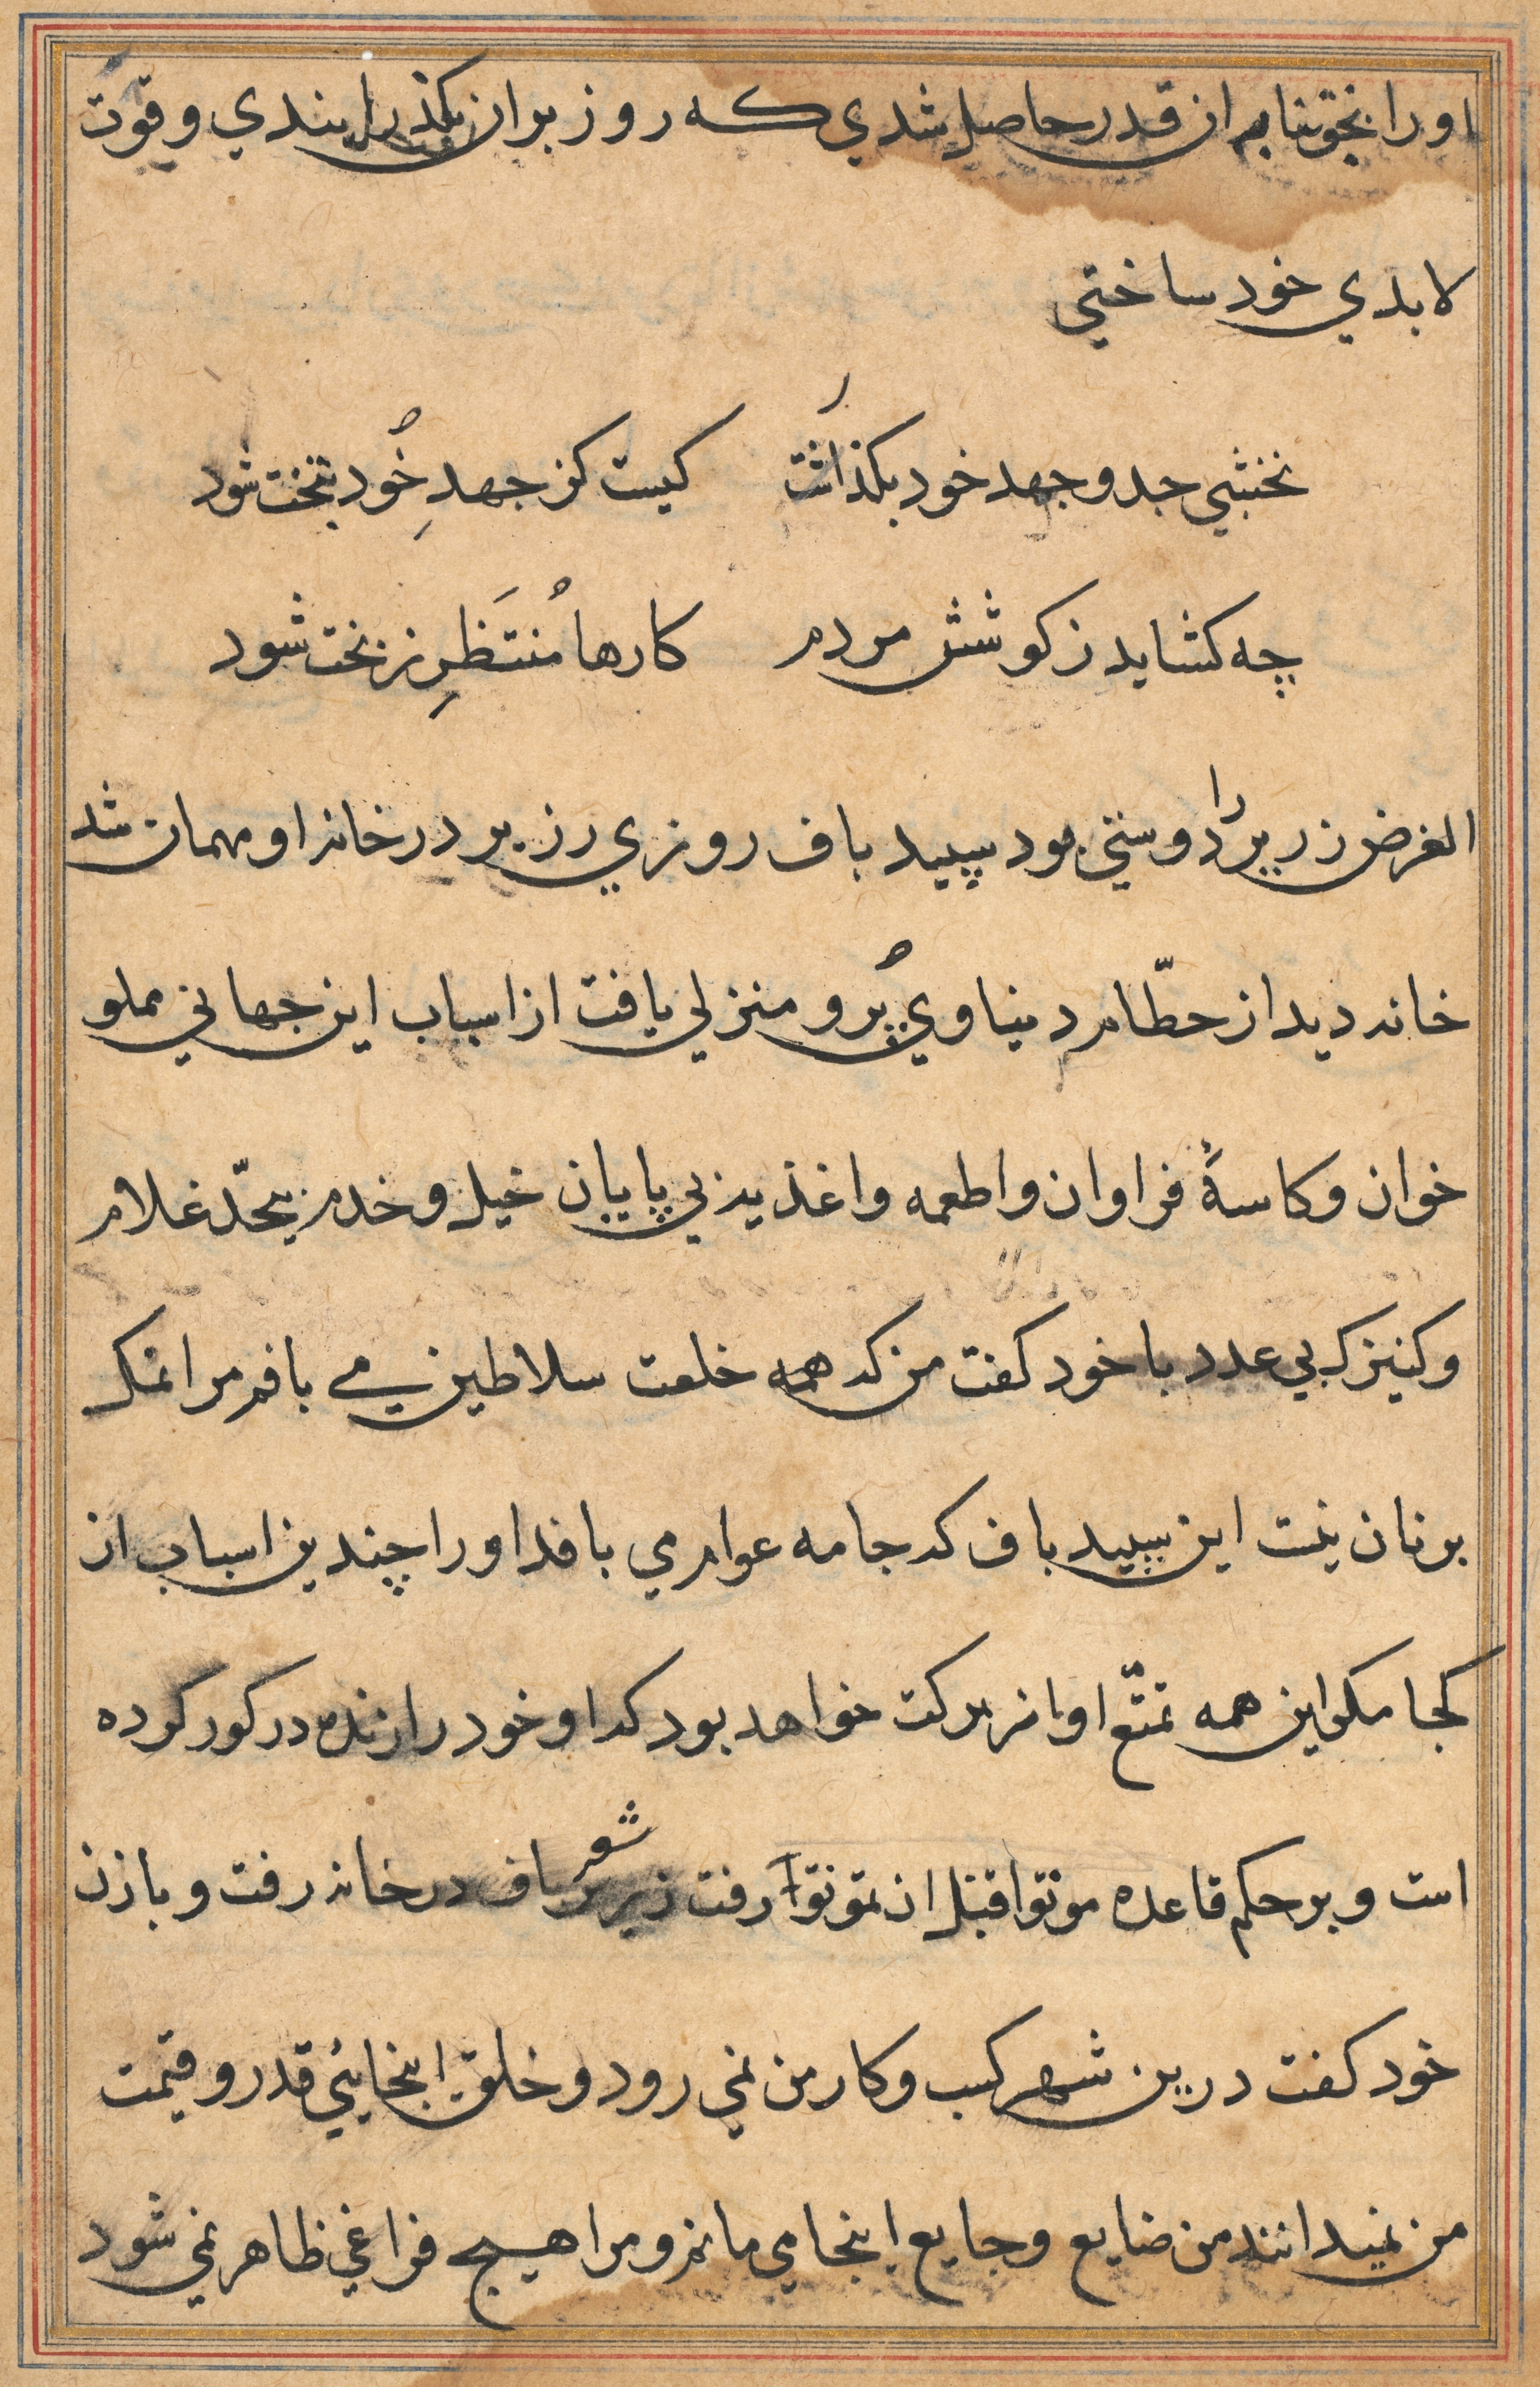 او را بحق تنابه از قدر حاصل شدي که روز بران بکذرایندي و قوت
لا بدي خود ساختي
نخشبي جد و جهد خود بکذاشت کیست کز جهدِ خُود بتخت شود
چه کشاید ز کوشش مردم کارها مُنتَظَرِ ز بخت شود
الغرض زریر را دوستي بود سپید باف روزي زریر در خانه او مهمان شد
خانه دید از حطّام دنیاوي پُر و منزلي یافت از اسباب این جهاني مملو
خوان و کاسۀ فراوان و اطعمه و اغذیه بي پایان خیل و خدم بیحدّ غلام
و کنیزک بي عدد با خود کفت من که همه خلعت سلاطین مي بافم مرا نمک
بر نان نیست این سپید باف که جامه عوام مي بافد او را چندین اسباب از
کجا مکر این همه تمتّع او از برکت خواهد بود که او خود را زنده در کور کرده
است و بر حکم قاعده موتوا قبل ان تموتوا رفت زریر شعر باف در خانه رفت و با زن
خود کفت درین شهر کسب و کار من نمي رود و خلق اینجایئي قدر و قیمت
من نمیدانند من ضایع و جایع اینجا مي مانم و مرا هیچ فراغي ظاهر نمي شود